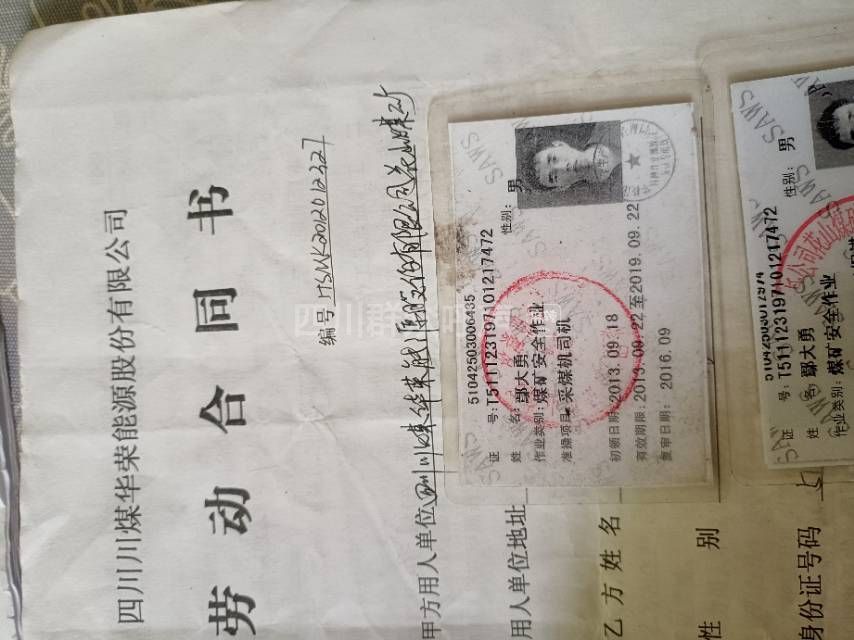 四川川煤华荣能源股份有限公司
劳动合同书
编号 HSMK2012012327
甲方用人单位 四川川煤华荣能源股份有限公司花山煤矿
用人单位地址
乙方姓名
性别
身份证号码 5
51042503006435
证号: T511123197101217472
姓名: 鄢大勇 性别: 男
作业类别: 煤矿安全作业
准操项目: 采煤机司机
初领日期: 2013.09.18
有效期限: 2013.09.22 至 2019.09.22
复审日期: 2016.09
SAWS
51042503012974
证号: T511123197101217472
姓名: 鄢大勇 性别: 男
作业类别: 煤矿安全作业
SAWS
公司花山煤
四川